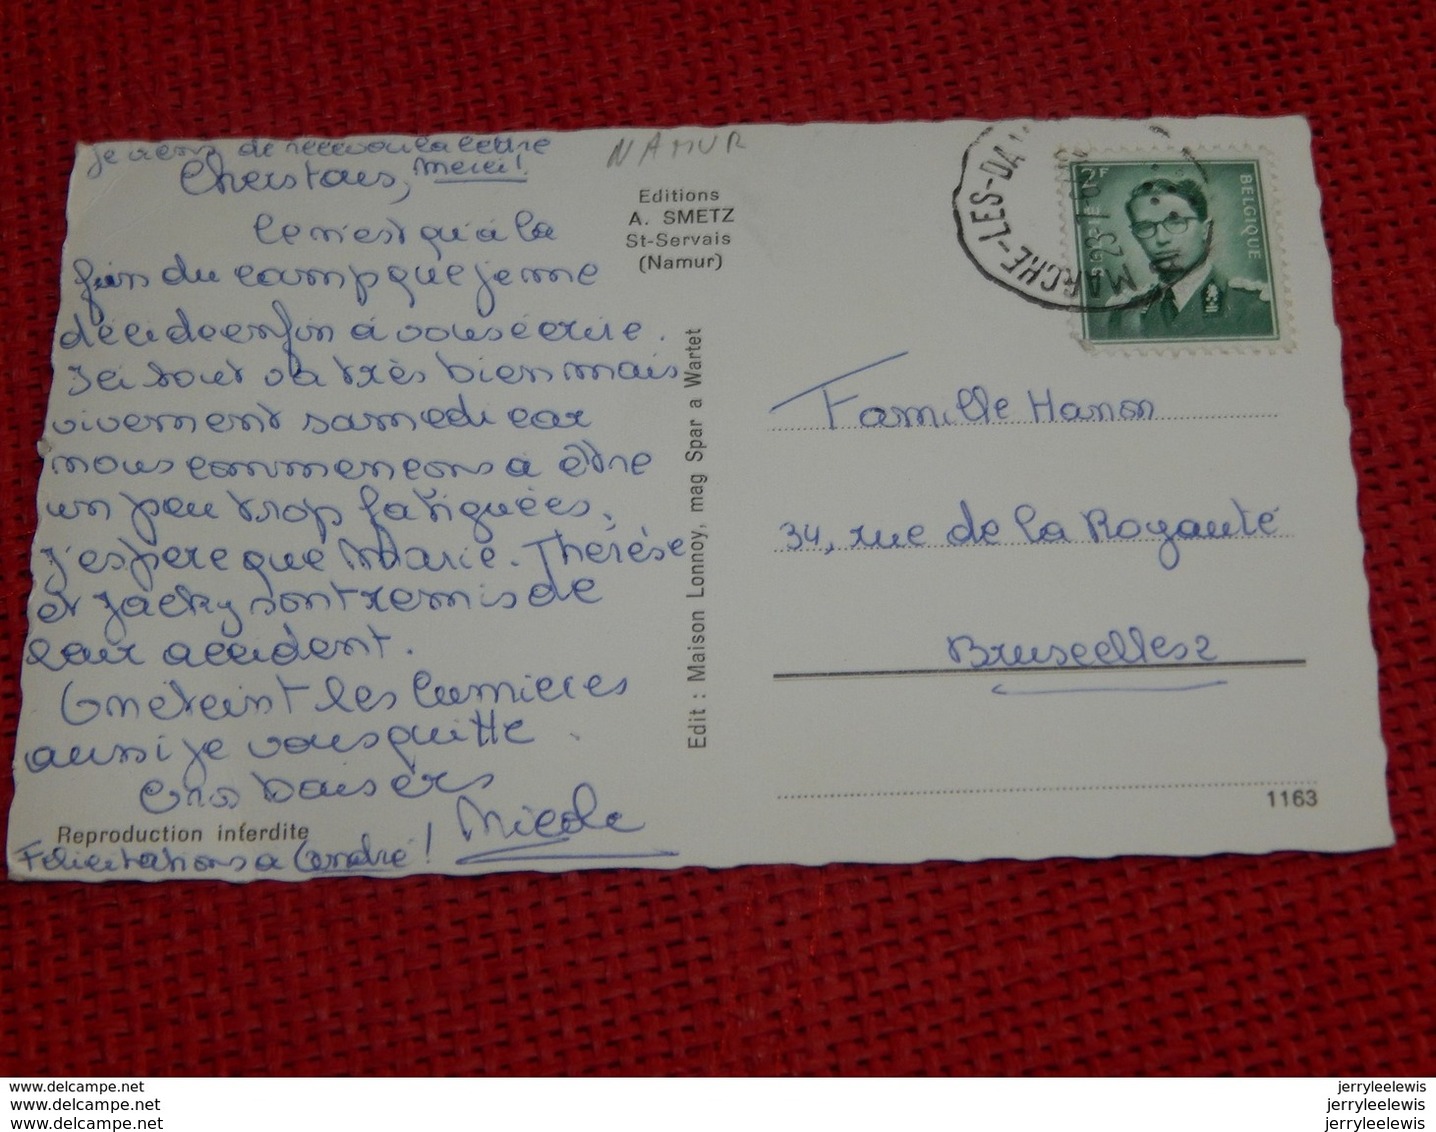 je viens de recevoir la lettre
Merci!
Chers tous,
Ce n'est qu'à la
fin du camp que je me
décide enfin à vous écrire.
Ici tout va très bien mais
vivement samedi car
nous commençons à être
un peu trop fatiguées,
j'espère que Marie-Thérèse
et Jacky sont remis de
leur accident.
On éteint les lumières
aussi je vous quitte
Gros baisers
Nicole
Félicitations à André!
Reproduction interdite
NAMUR
Editions
A. SMETZ
St-Servais
(Namur)
Edit : Maison Lonnoy, mag Spar a Wartet
MARCHE-LES-DA
2F
BELGIQUE
BELGIE
Famille Hanon
34, rue de la Royauté
Bruxelles 2
1163
www.delcampe.net
www.delcampe.net
www.delcampe.net
jerryleelewis
jerryleelewis
jerryleelewis